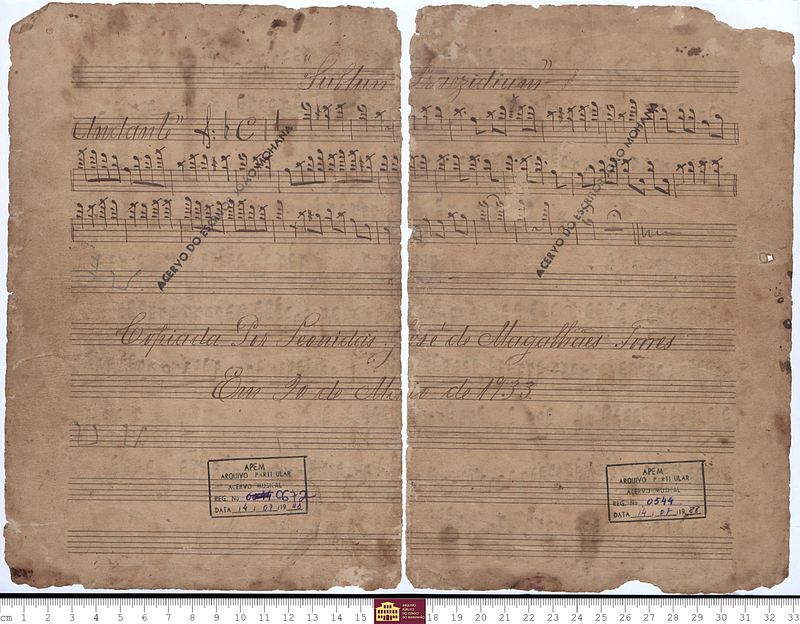 "Subtun Praezidium"
Andante" C
ACERVO DO ESCRITOR JOÃO MOHANA
ACERVO DO ESCRITOR JOÃO MOHANA
Copiada Por Leonidas José de Magalhães Torres
Em 20 de de 1933
APEM
ARQUIVO PARTICULAR
ACERVO MUSICAL
REG. No 0544 0672
DATA 14 / 07 /19 88
APEM
ARQUIVO PARTICULAR
ACERVO MUSICAL
REG. No 0544
DATA 14 / 07 /19 88
cm 1 2 3 4 5 6 7 8 9 10 11 12 13 14 15 17 18 19 20 21 22 23 24 25 26 27 28 29 30 31 32 33
ARQUIVO
PÚBLICO
DO ESTADO
DO MARANHÃO